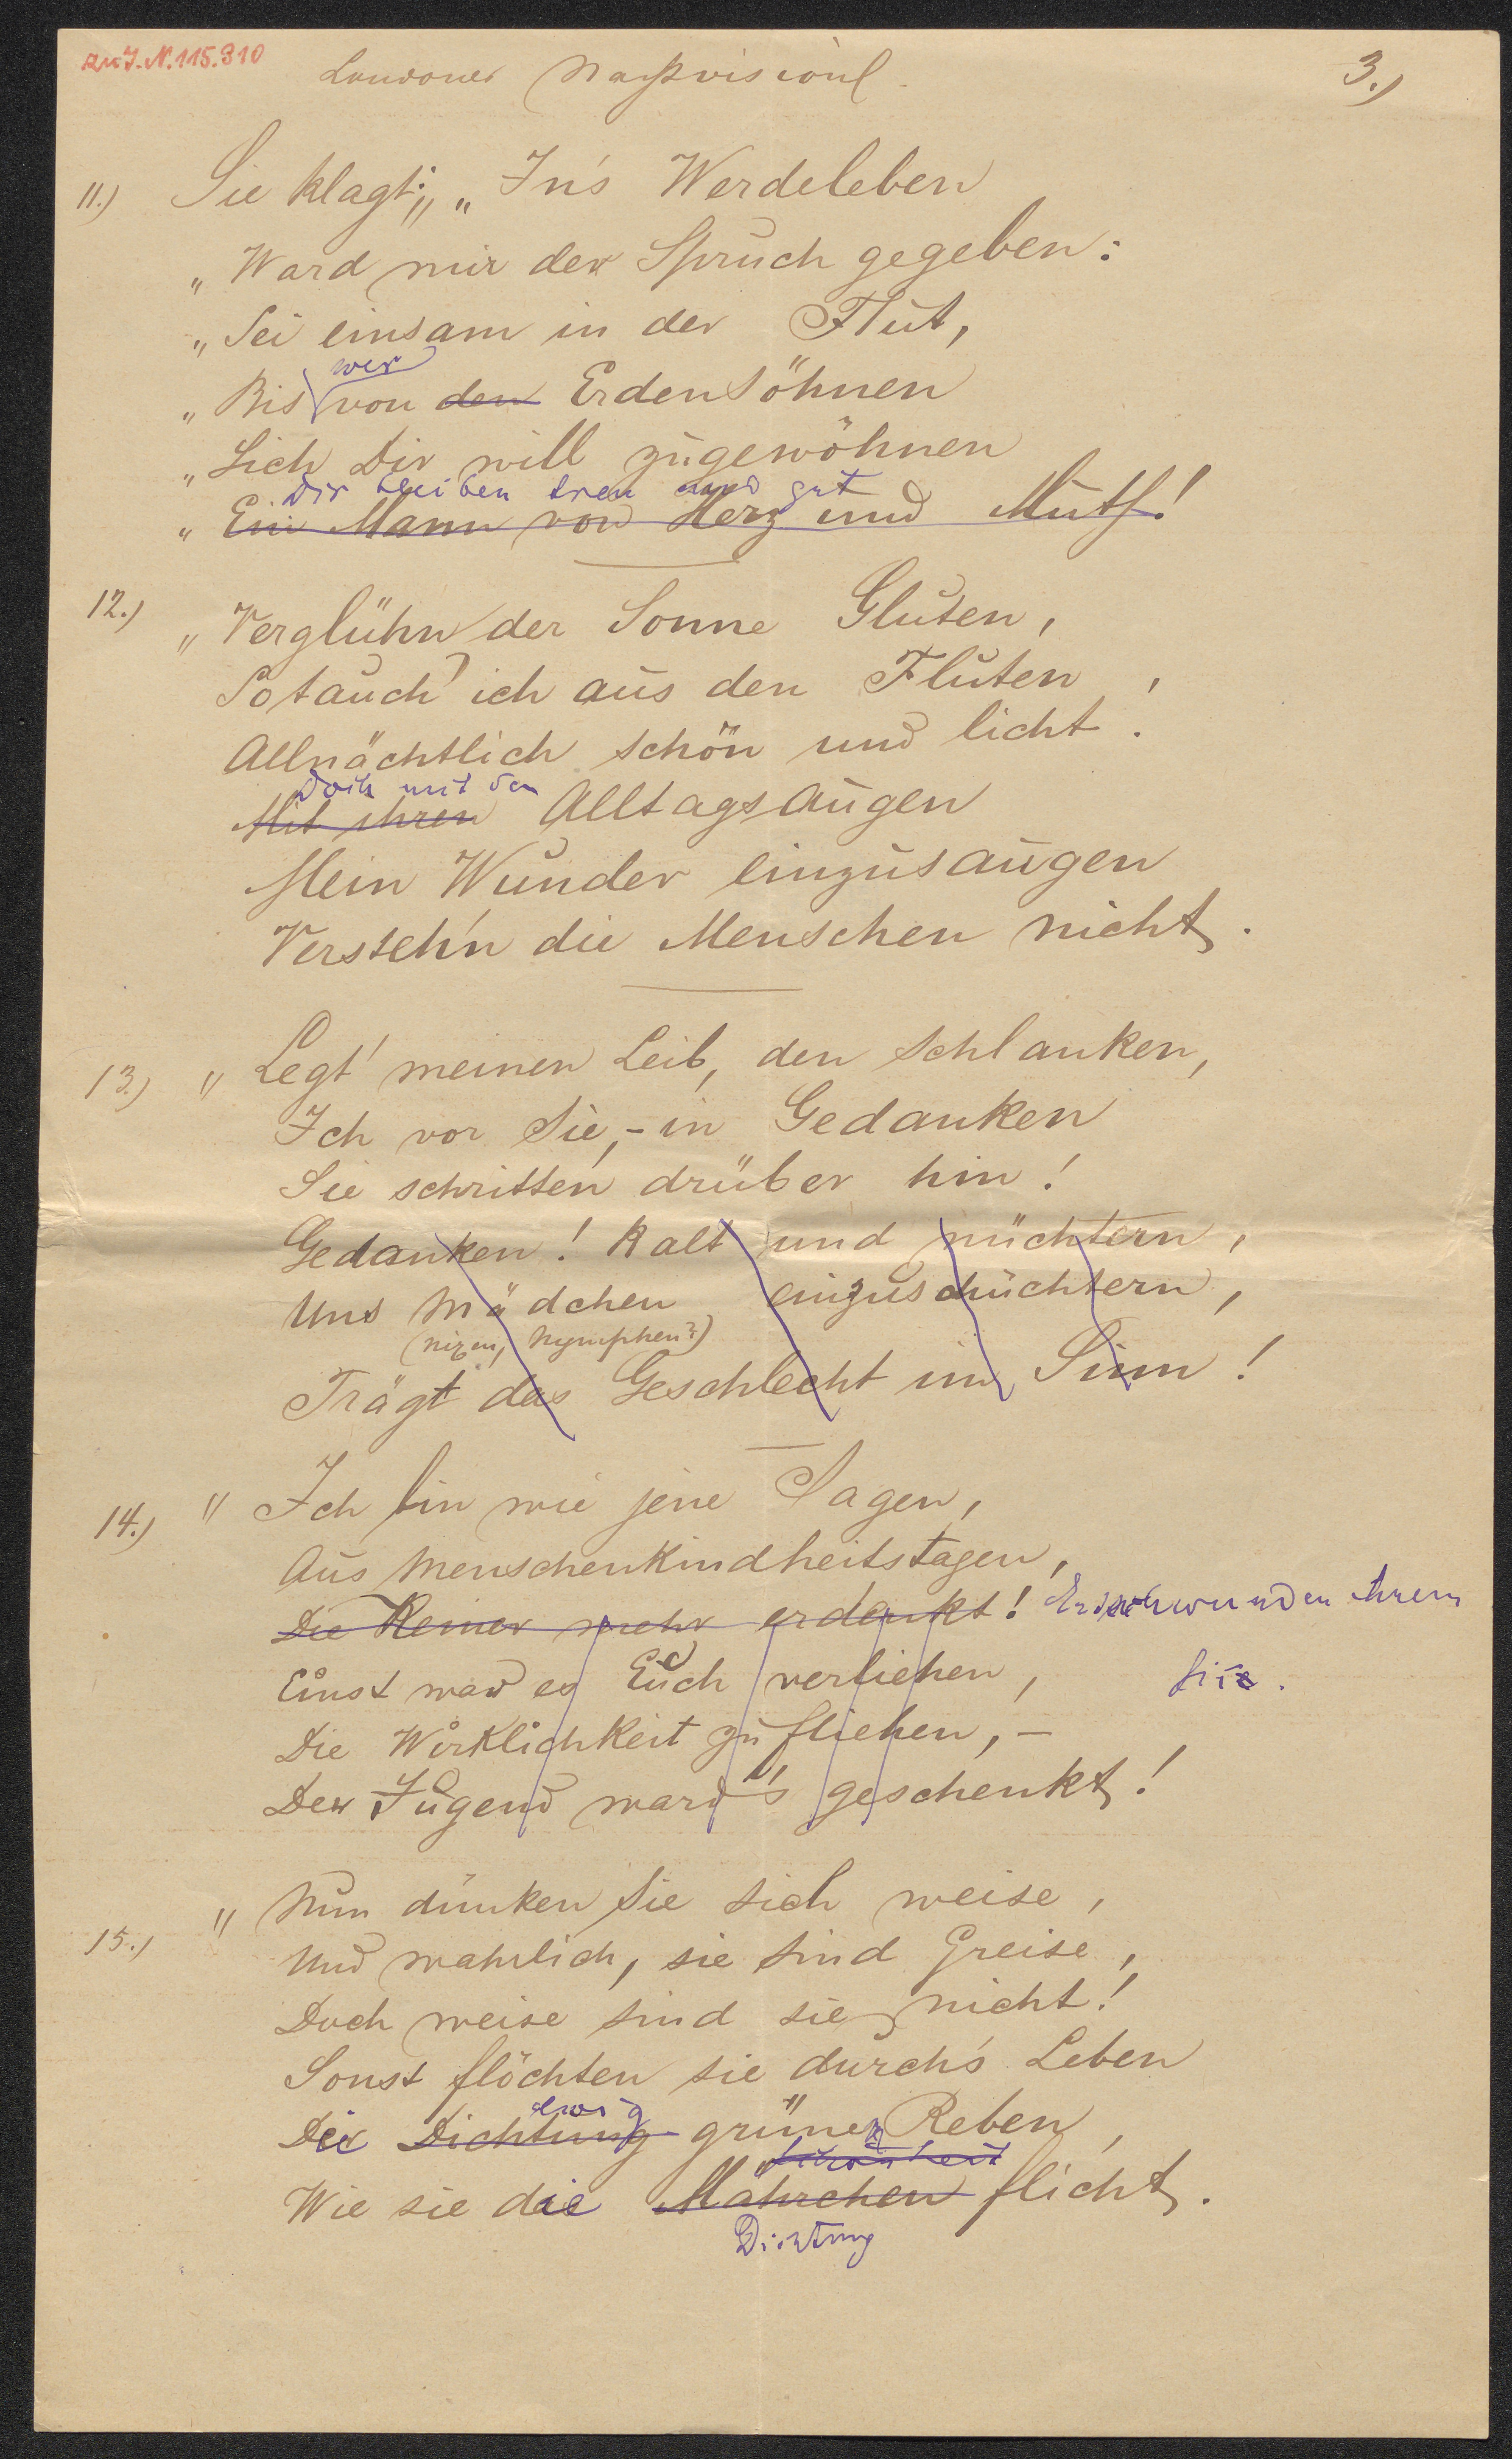 zu J.N. 115.310
3.)
11.) Sie klagt: „Jn's Werdeleben
„Ward mir der Spruch gegeben:
„Sei einsam in der Flut,
wer
„Bis von den Erdensöhnen
„Sich Dir will zugewöhnen
Dir bleiben treu und gut
„Ein Mann von Herz und Muth!
12.) „Verglühn der Sonne Gluten,
So tauch' ich aus den Fluten,
Allnächtlich schön und licht.
Doch mit den
Mit ihren Alltagsaugen
Mein Wunder einzusaugen
Versteh'n die Menschen nicht.
13.) „Legt' meinen Leib, den schlanken,
Ich vor Sie, - in Gedanken
Sie schritten drüber hin!
Gedanken! Kalt und nüchtern,
Uns Mädchen einzuschüchtern,
(Nixen, Nymphen?)
Trägt das Geschlecht im Sinn!
14.) „Ich bin wie jene Sagen,
Aus Menschenkindheitstagen,
Die Keiner mehr erdenkt! Entschwunden ihrem
Einst war es Euch verliehen,
Die Wirklichkeit zu fliehen, -
Der Jugend ward's geschenkt!
15.) „Nun dünken Sie sich weise,
Und wahrlich, sie sind Greise,
Doch weise sind sie nicht!
Sonst flöchten sie durch's Leben
ewig
Die Dichtung grünen Reben,
Schönheit
Wie sie die Mährchen flicht.
Dichtung